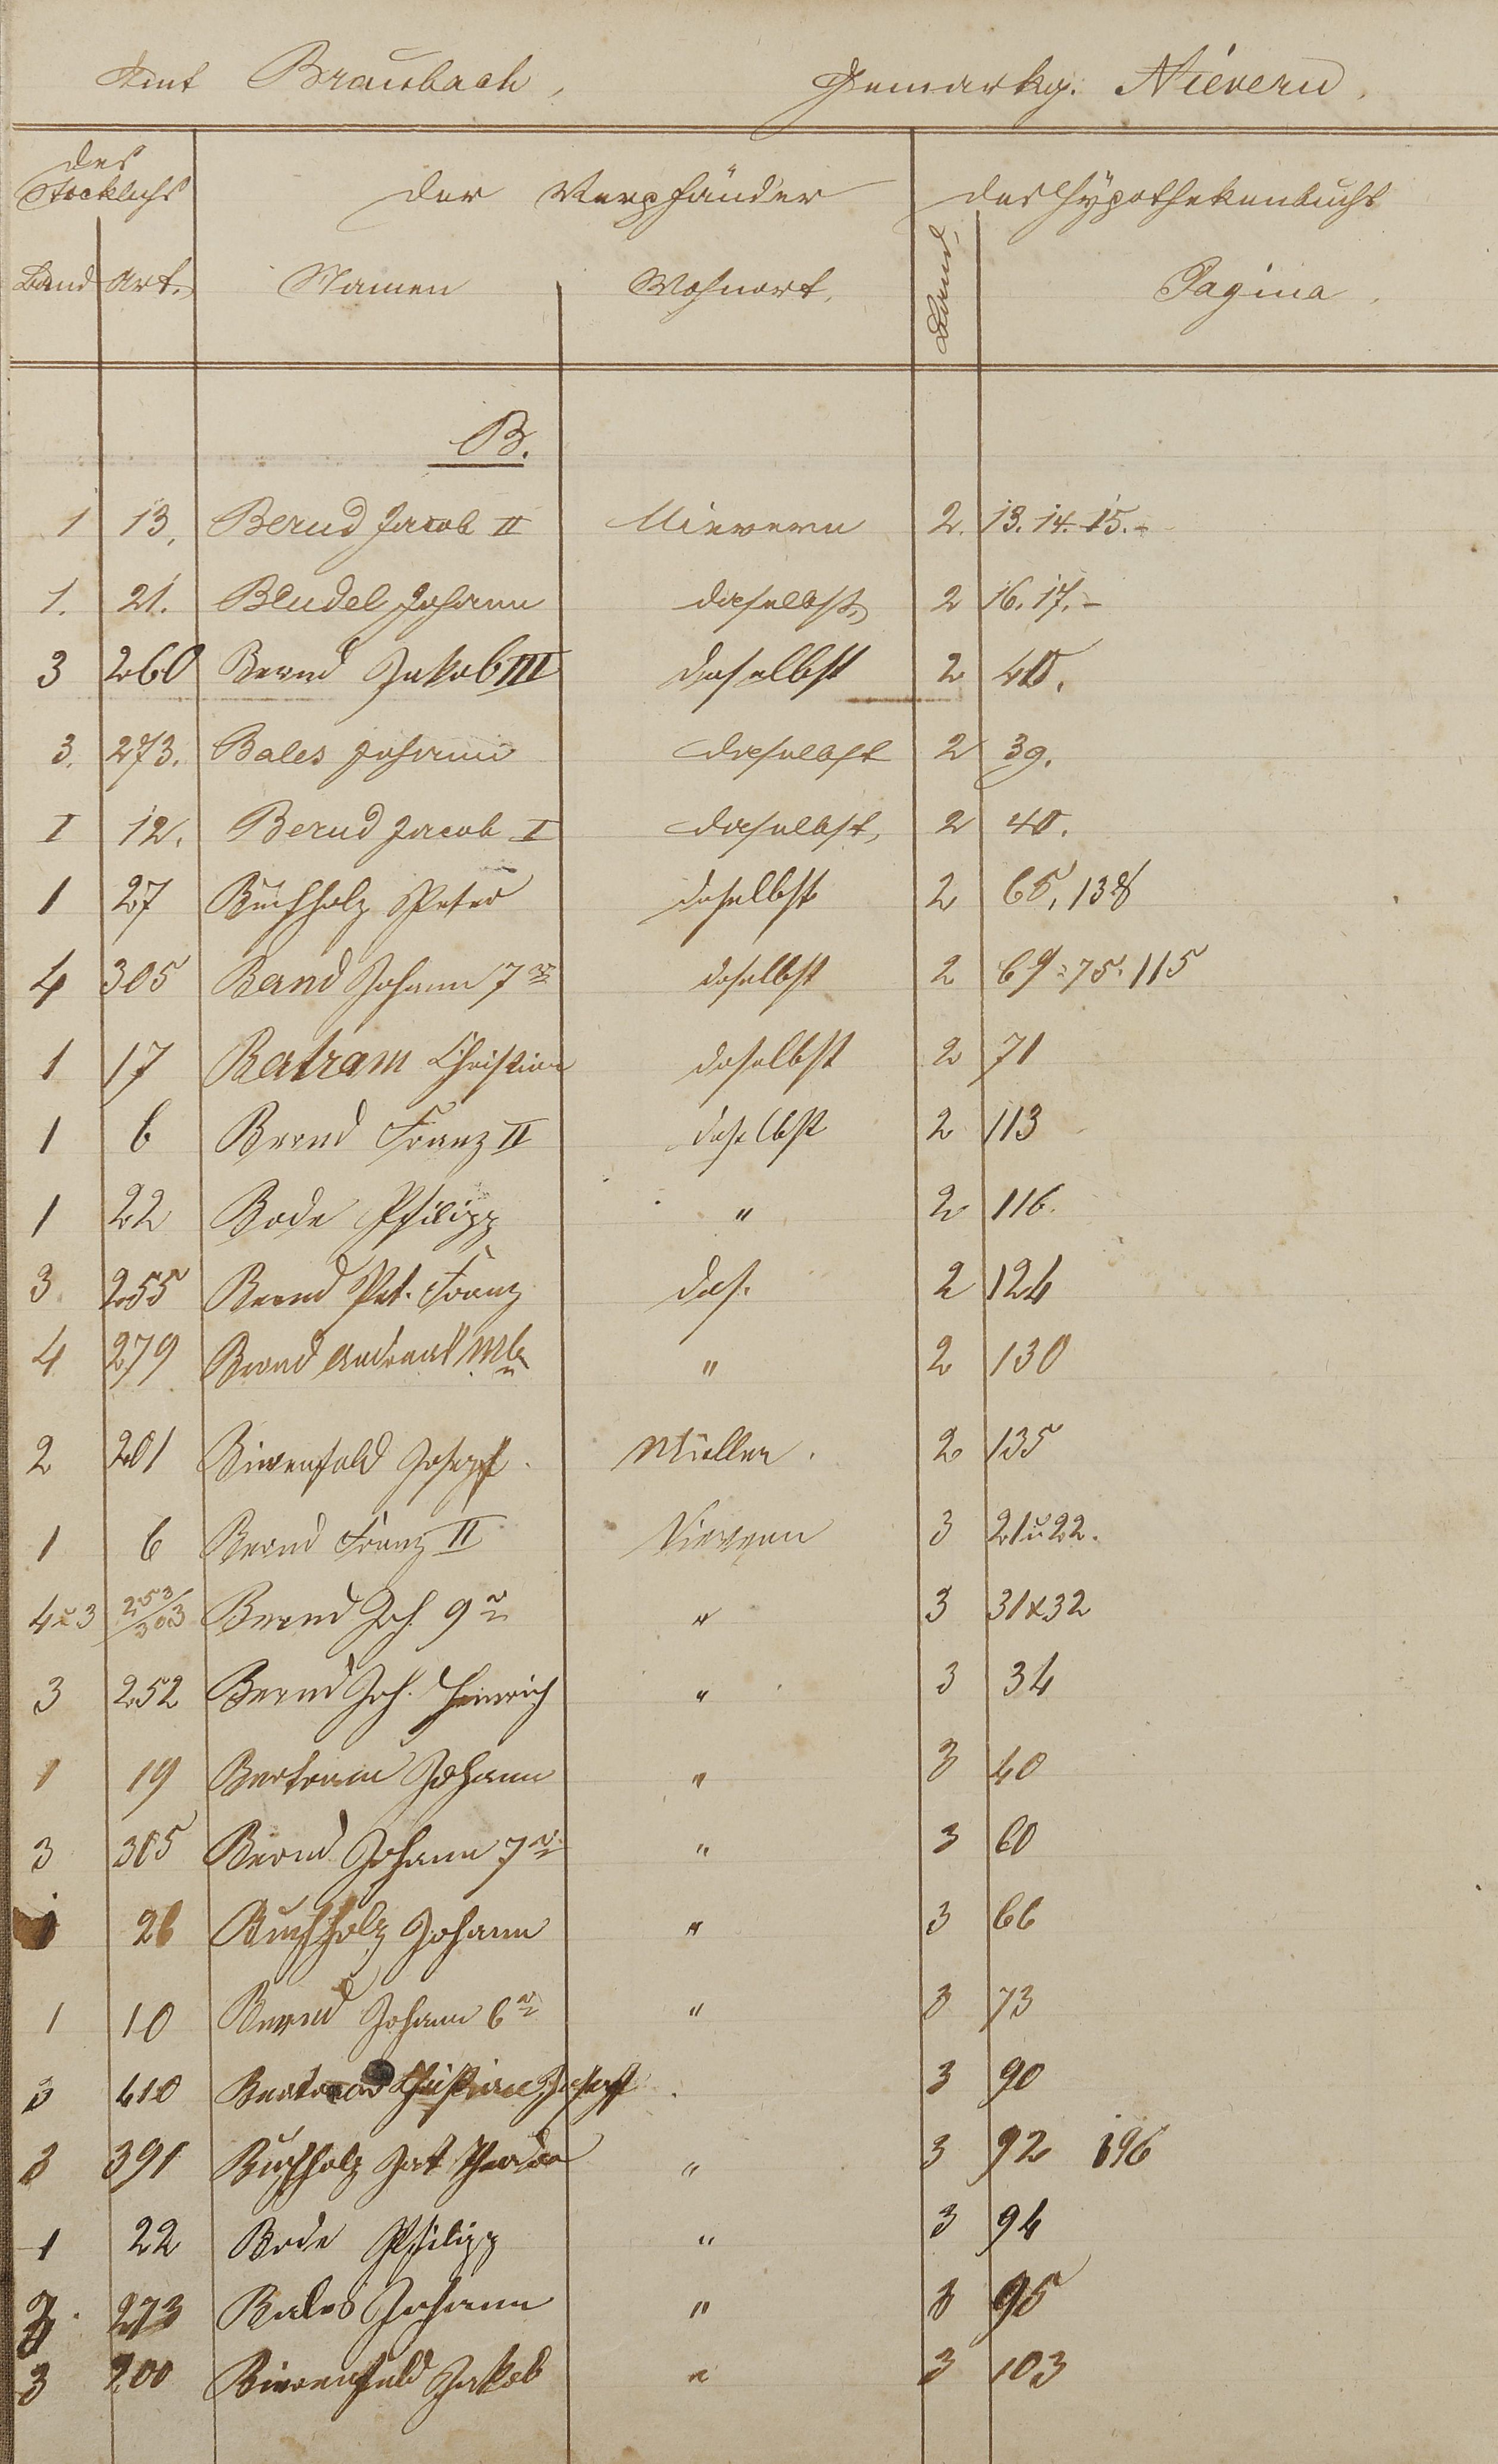 Amt Braubach, Gemarkg. Nievern.
des Stockbuchs der Verpfänder des Hypothekenbuchs
Band Art. Namen Wohnort, Band, Pagina.
B.
1 13. Bernd Jacob II Nievern 2. 13. 14. 15.-
1. 21. Bendel Johann daselbst, 2 16. 17.-
3 260 Bernd Jakob III daselbst 2 40.
3. 273. Bales Johann daselbst 2 39.
I 12. Bernd Jacob I daselbst, 2 40.
1 27 Buchholz Peter daselbst 2 65, 138
4 305 Bernd Johann 7r daselbst 2 69. 75. 115
1 17 Batram Christian daselbst 2 71
1 6 Bernd Franz II daselbst 2 113
1 22 Bode Philipp " 2 116.
3. 255 Bernd Pet. Franz das. 2 124
4 279 Bernd Andreas " 2 130
2 201 Birenfeld Joseph. Müllen. 2 135
1 6 Bernd Franz II Nievern 3 21 u 22.
4 u 3 253/303 Bernd Joh. 9r " 3 31 & 32
3 252 Bernd Joh. Heinrich " 3 34
1 19 Bertram Johann " 3 40
3 305 Bernd Johann 7r " 3 60
1 26 Buchholz Johann " 3 66
1 10 Bernd Johann 6r " 3 73
3 410 Bertram Christian Joseph 3 90
3 391 Buchholz Jak " 3 92 196
1 22 Bode Philipp " 3 94
3. 273 Bales Johann " 3 95
3 200 Birenfeld Jakob " 3 103